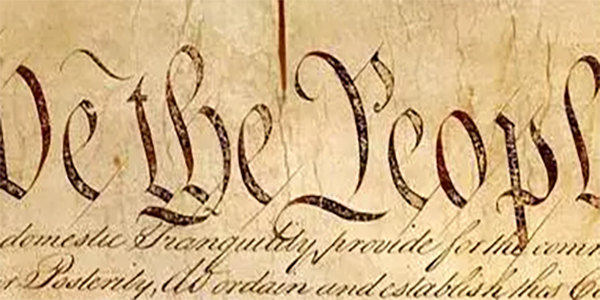 We the People
domestic Tranquility, provide for the com
r Posterity, do ordain and establish this Co